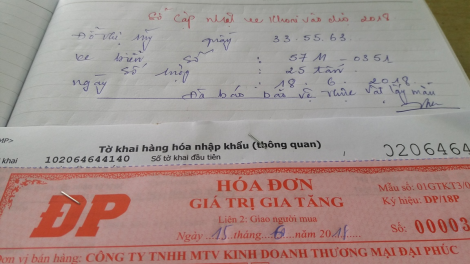 Sổ cập nhật xe tham vào dịa 2018
Đỗ Thị Mỹ quầy 33.55.63
xe biển số : 57M - 0351
số lượng : 25 tấn
ngày : 18 . 6 . 2018
Đã báo bảo vệ thực vật lấy mẫu
MP>
Tờ khai hàng hóa nhập khẩu (thông quan)
khai 102064644140 Số tờ khai đầu tiên
0206464
ĐP
HÓA ĐƠN
GIÁ TRỊ GIA TĂNG
Liên 2: Giao người mua
Ngày 15 tháng 6 năm 2018
Mẫu số: 01GTKT3/0
Ký hiệu: DP/18P
Số: 00003
Đơn vị bán hàng: CÔNG TY TNHH MTV KINH DOANH THƯƠNG MẠI ĐẠI PHÚC